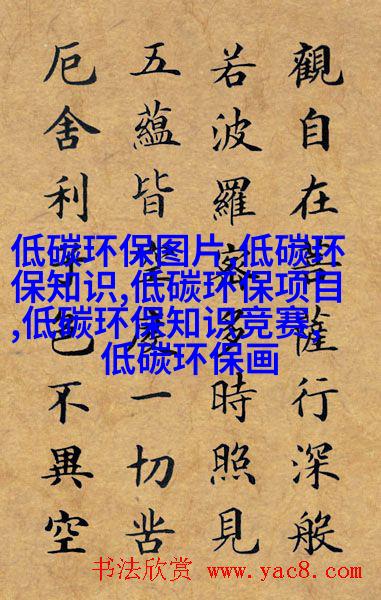 觀自在菩薩行深般
若波羅蜜多時照見
五蘊皆空度一切苦
厄舍利子色不異空
低碳环保图片,低碳环
保知识,低碳环保项目
,低碳环保知识竞赛,
低碳环保画
书法欣赏 www.yac8.com